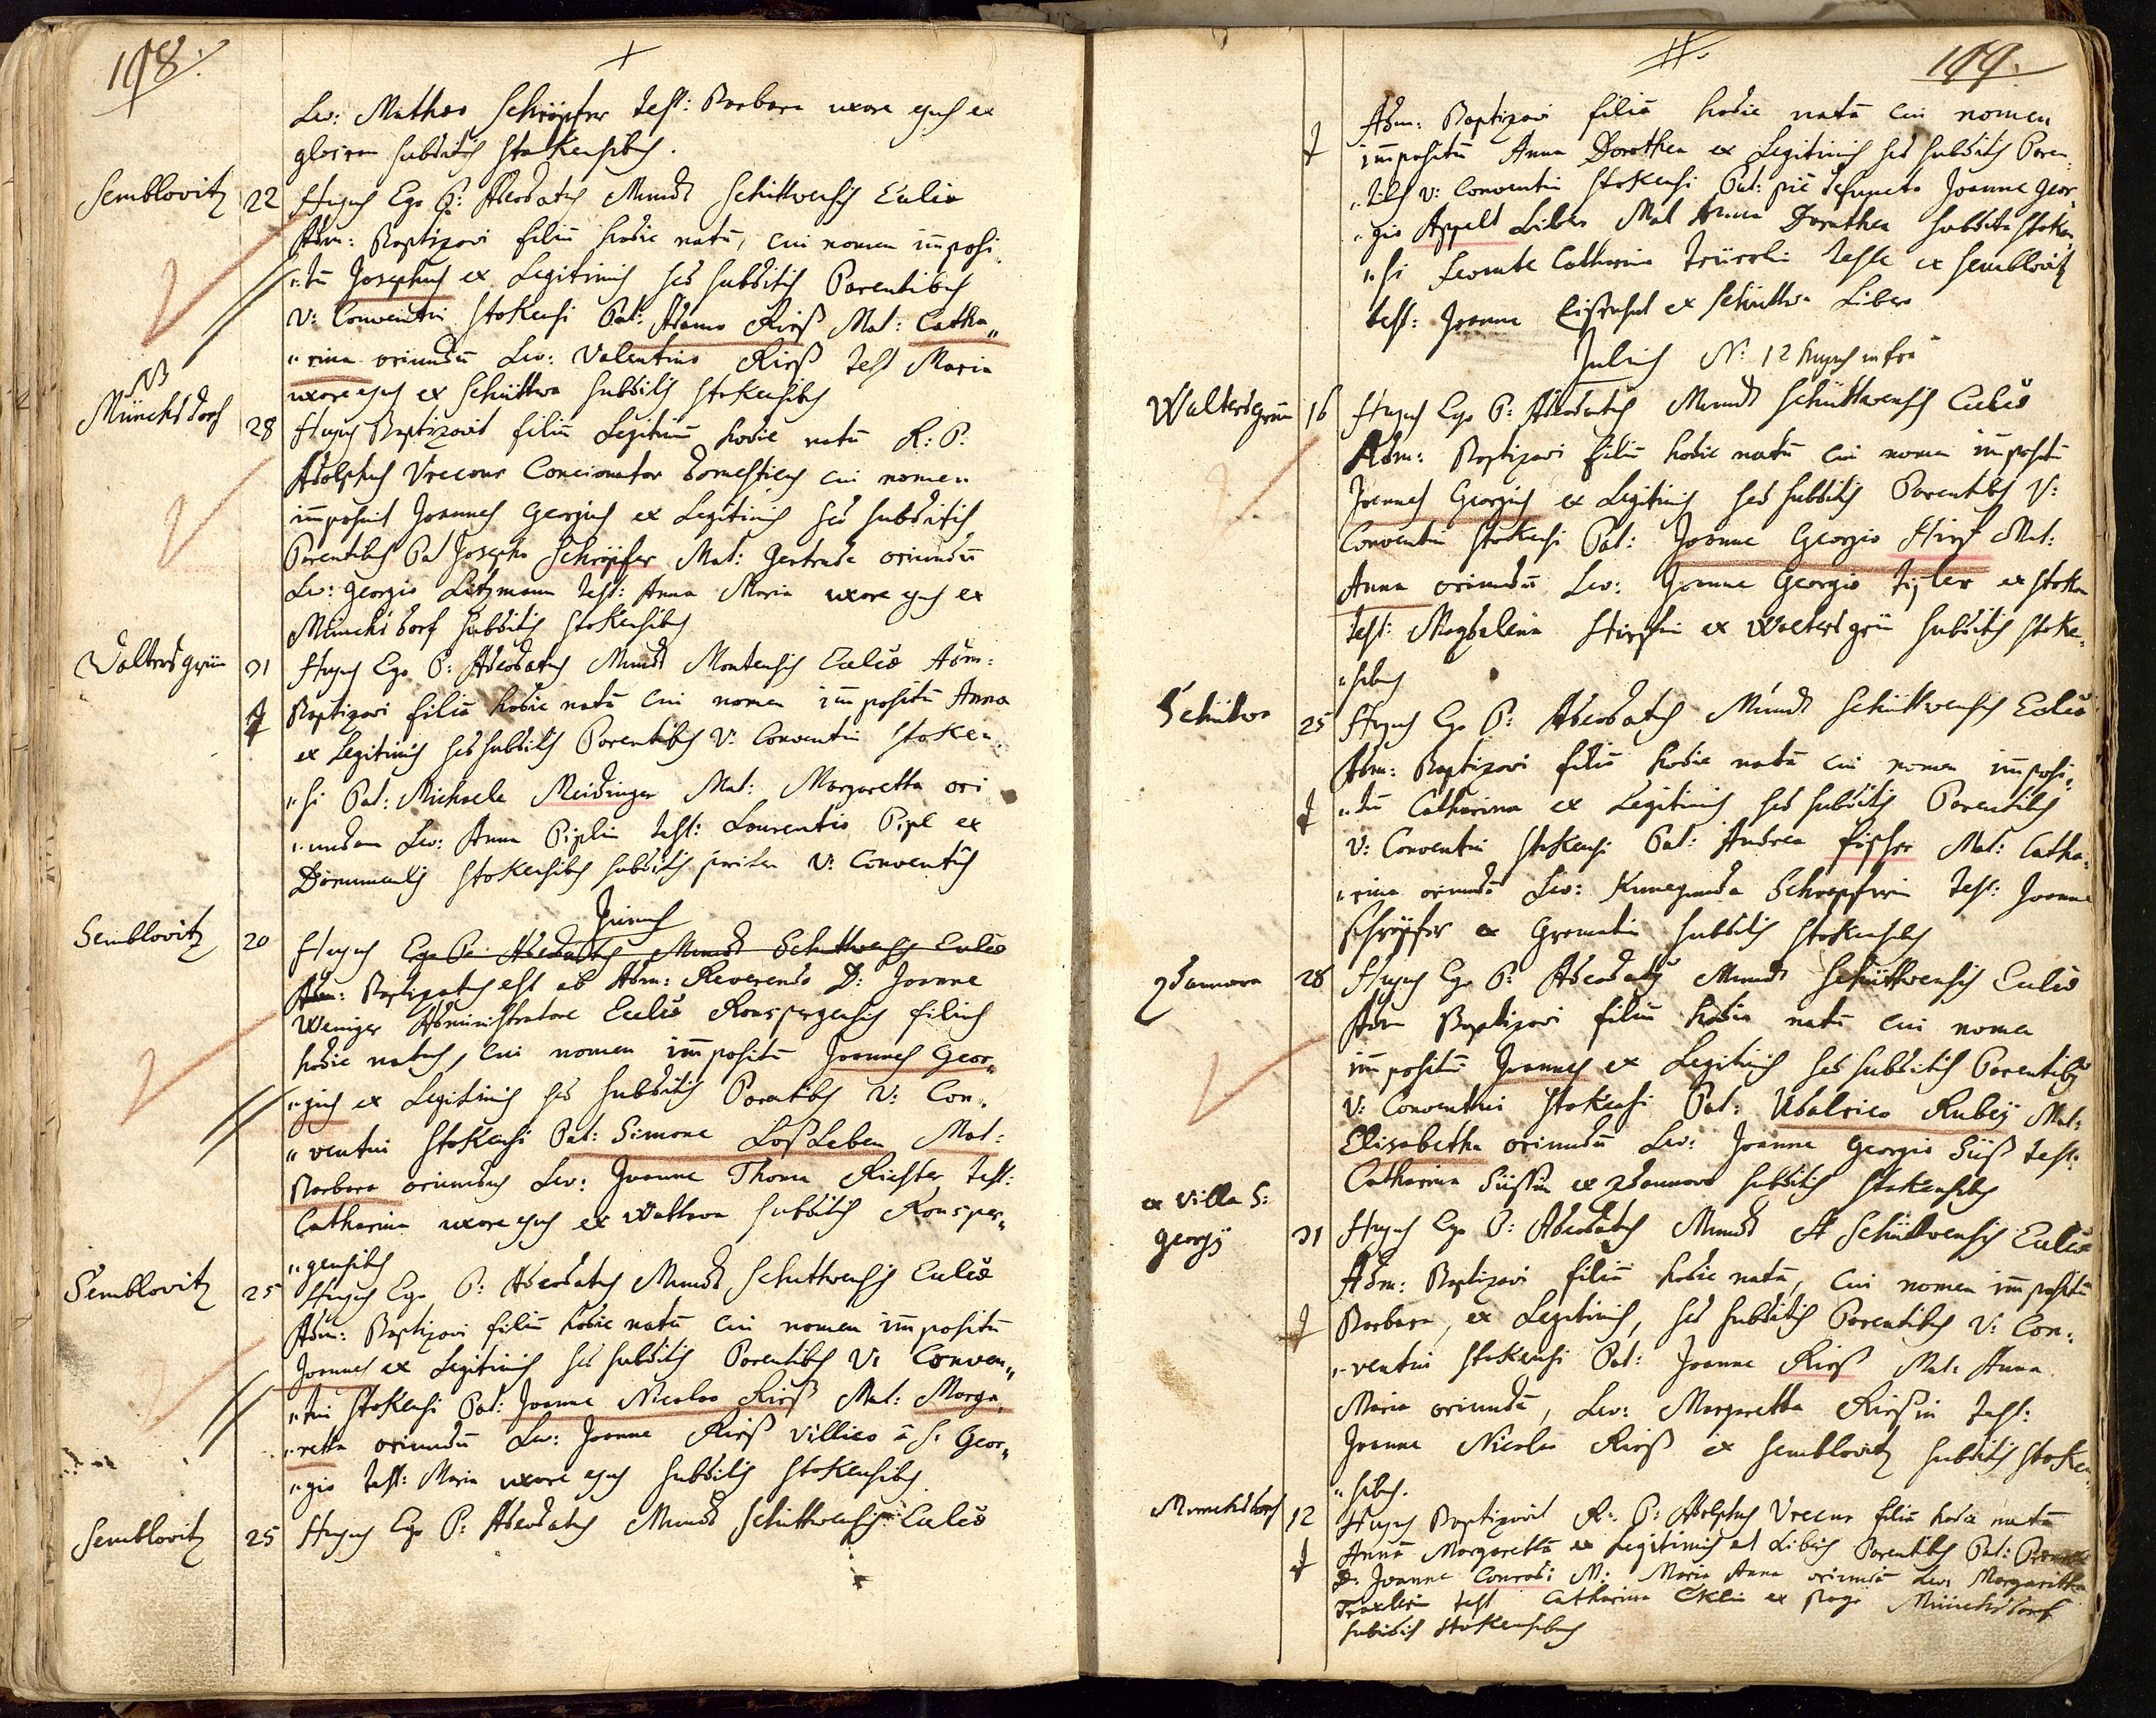 118.
Lev: Matheo Schröpfer test: Barbara uxore ejus ex
subditis stokensibus.
Semblovitz 22 Hujus Ego P: Adeodatus Mundt Schüttwensis Eccliæ
Adm: Baptizavi filiū hodie natū, cui nomen imposi„
„tū Josephus ex Legitimis sed subditis Parentibus
V: Conventui stokensi Pat: Adamo Rirß Mat: Catha„
„rina oriundū Lev: Valentino Rirß test Maria
uxore ejus ex Schüttwa subditis stokensibus
NB
Münchsdorf 28 Hujus Baptizavit filiū Legitimū hodie natū R: P:
Adolphus Vrecour Concionator domesticus cui nomen
imposuit Joannes Georgius ex Legitimis sed subditis
Parentibus Pat Josepho Schröpfer Mat: Gertrude oriundū
Lev: Georgio Litzmann test: Anna Maria uxore ejus ex
Münchsdorf subditis stokensibus
Waltersgrün 31 Hujus Ego P: Adeodatus Mundt Montensis Eccliæ Adm:
Baptizavi filiā hodie natā cui nomen impositū Anna
ex Legitimis sed subditis Parentibus V: Conventui stoken„
„si Pat: Michaele Meidinger Mat: Margaretta ori„
„undam Lev: Anna Piplin test: Laurentio Pipl ex
stokensibus subditis V: Conventûs
Junius
Semblovitz 20 Hujus Ego P: Adeodatus Mundt Schuttwensis Eccliæ
Adm: Baptizatus est ab Adm: Reverendo D: Joanne
Weniger Administratore Eccliæ Ronspergensis filius
hodie natus, cui nomen impositū Joannes Geor„
„gius ex Legitimis sed subditis Parentibus V: Con„
„ventui stokensi Pat: Simone Loßleben Mat:
Barbara oriundus Lev: Joanne Thoma Richter test:
Catharina uxore ejus ex Wottawa subditis Ronsper„
„gensibus
Semblovitz 25 Hujus Ego P: Adeodatus Mundt Schuttwensis Eccliæ
Adm: Baptizavi filiū hodie natū cui nomen impositū
Joannes ex Legitimis sed subditis Parentibus V: Conven„
„tui stokensi Pat: Joanne Nicolao Rirß Mat: Marga„
„retta oriundū Lev: Joanne Rirß villico â S: Geor„
„gio test: Maria uxore ejus subditis stokensibus.
Semblovitz 25 Hujus Ego P: Adeodatus Mundt Schüttwensis Eccliæ
119.
Adm: Baptizavi filiā hodie natā cui nomen
impositū Anna Dorothea ex Legitimis sed subditis Paren„
„tibus V: Conventui stokensi Pat: piè defuncto Joanne Geor„
„gio Appelt Libero Mat Anna Dorothea subdita stoken„
„si Levante Catharina teste ex semblovitz
test: Joanne ex Schüttwa Libero
Julius N: 12 hujus infra
Waltersgrün 16 Hujus Ego P: Adeodatus Mundt Schüttwensis Eccliæ
Adm: Baptizavi filiū hodie natū cui nomen impositū
Joannes Georgius ex Legitimis sed subditis Parentibus V:
Conventui stokensi Pat: Joanne Georgio Hirß Mat:
Anna oriundū Lev: Joanne Georgio ex stoka
test: Magdalena Hirßin ex Waltersgrün subditis stoke„
„sibus
Schütwa 25 Hujus Ego P: Adeodatus Mundt Schüttwensis Eccliæ
Adm: Baptizavi filiā hodie natā cui nomen imposi„
„tū Catharina ex Legitimis sed subditis Parentibus
V: Conventui stokensi Pat: Andrea fischer Mat: Catha„
„rina oriundā Lev: Kunegunda Schröpferin test: Joanne
schröpfer ex Gramatin subditis stokensibus
Zdannova 28 Hujus Ego P: Adeodatus Mundt Schüttwensis Eccliæ
Adm Baptizavi filiū hodie natū cui nomen
impositū Joannes ex Legitimis sed subditis Parentibus
V: Conventui stokensi Pat: Udalrico Rubey Mat:
Elisabetha oriundū Lev: Joanne Georgio Süß test:
Catharina Süssin ex Zdannova subditis stokensibus
ex villa S:
Georgij 31 Hujus Ego P: Adeodatus Mundt Schüttwensis Eccliæ
Adm: Baptizavi filiā hodie natā, cui nomen impositū
Barbara, ex Legitimis, sed subditis Parentibus V: Con„
„ventui stokensi Pat: Joanne Rirß Mat: Anna
Maria oriundā, Lev: Margaretta Rirßin test:
Joanne Nicolao Rirß ex semblovitz subditis stoken„
„sibus.
Munchsdorf 12 Hujus Baptizavit R: P: Adolphus Vrecour filiā hodie natā
Annā Margarettā ex Legitimis et Liberis Parentibus Pat:
D: Joanne Conrad: M: Maria Anna oriundā Lev: Margaretta
Traxlerin test Catharina Eklin ex Pago Münchsdorf
subditis stokensibus